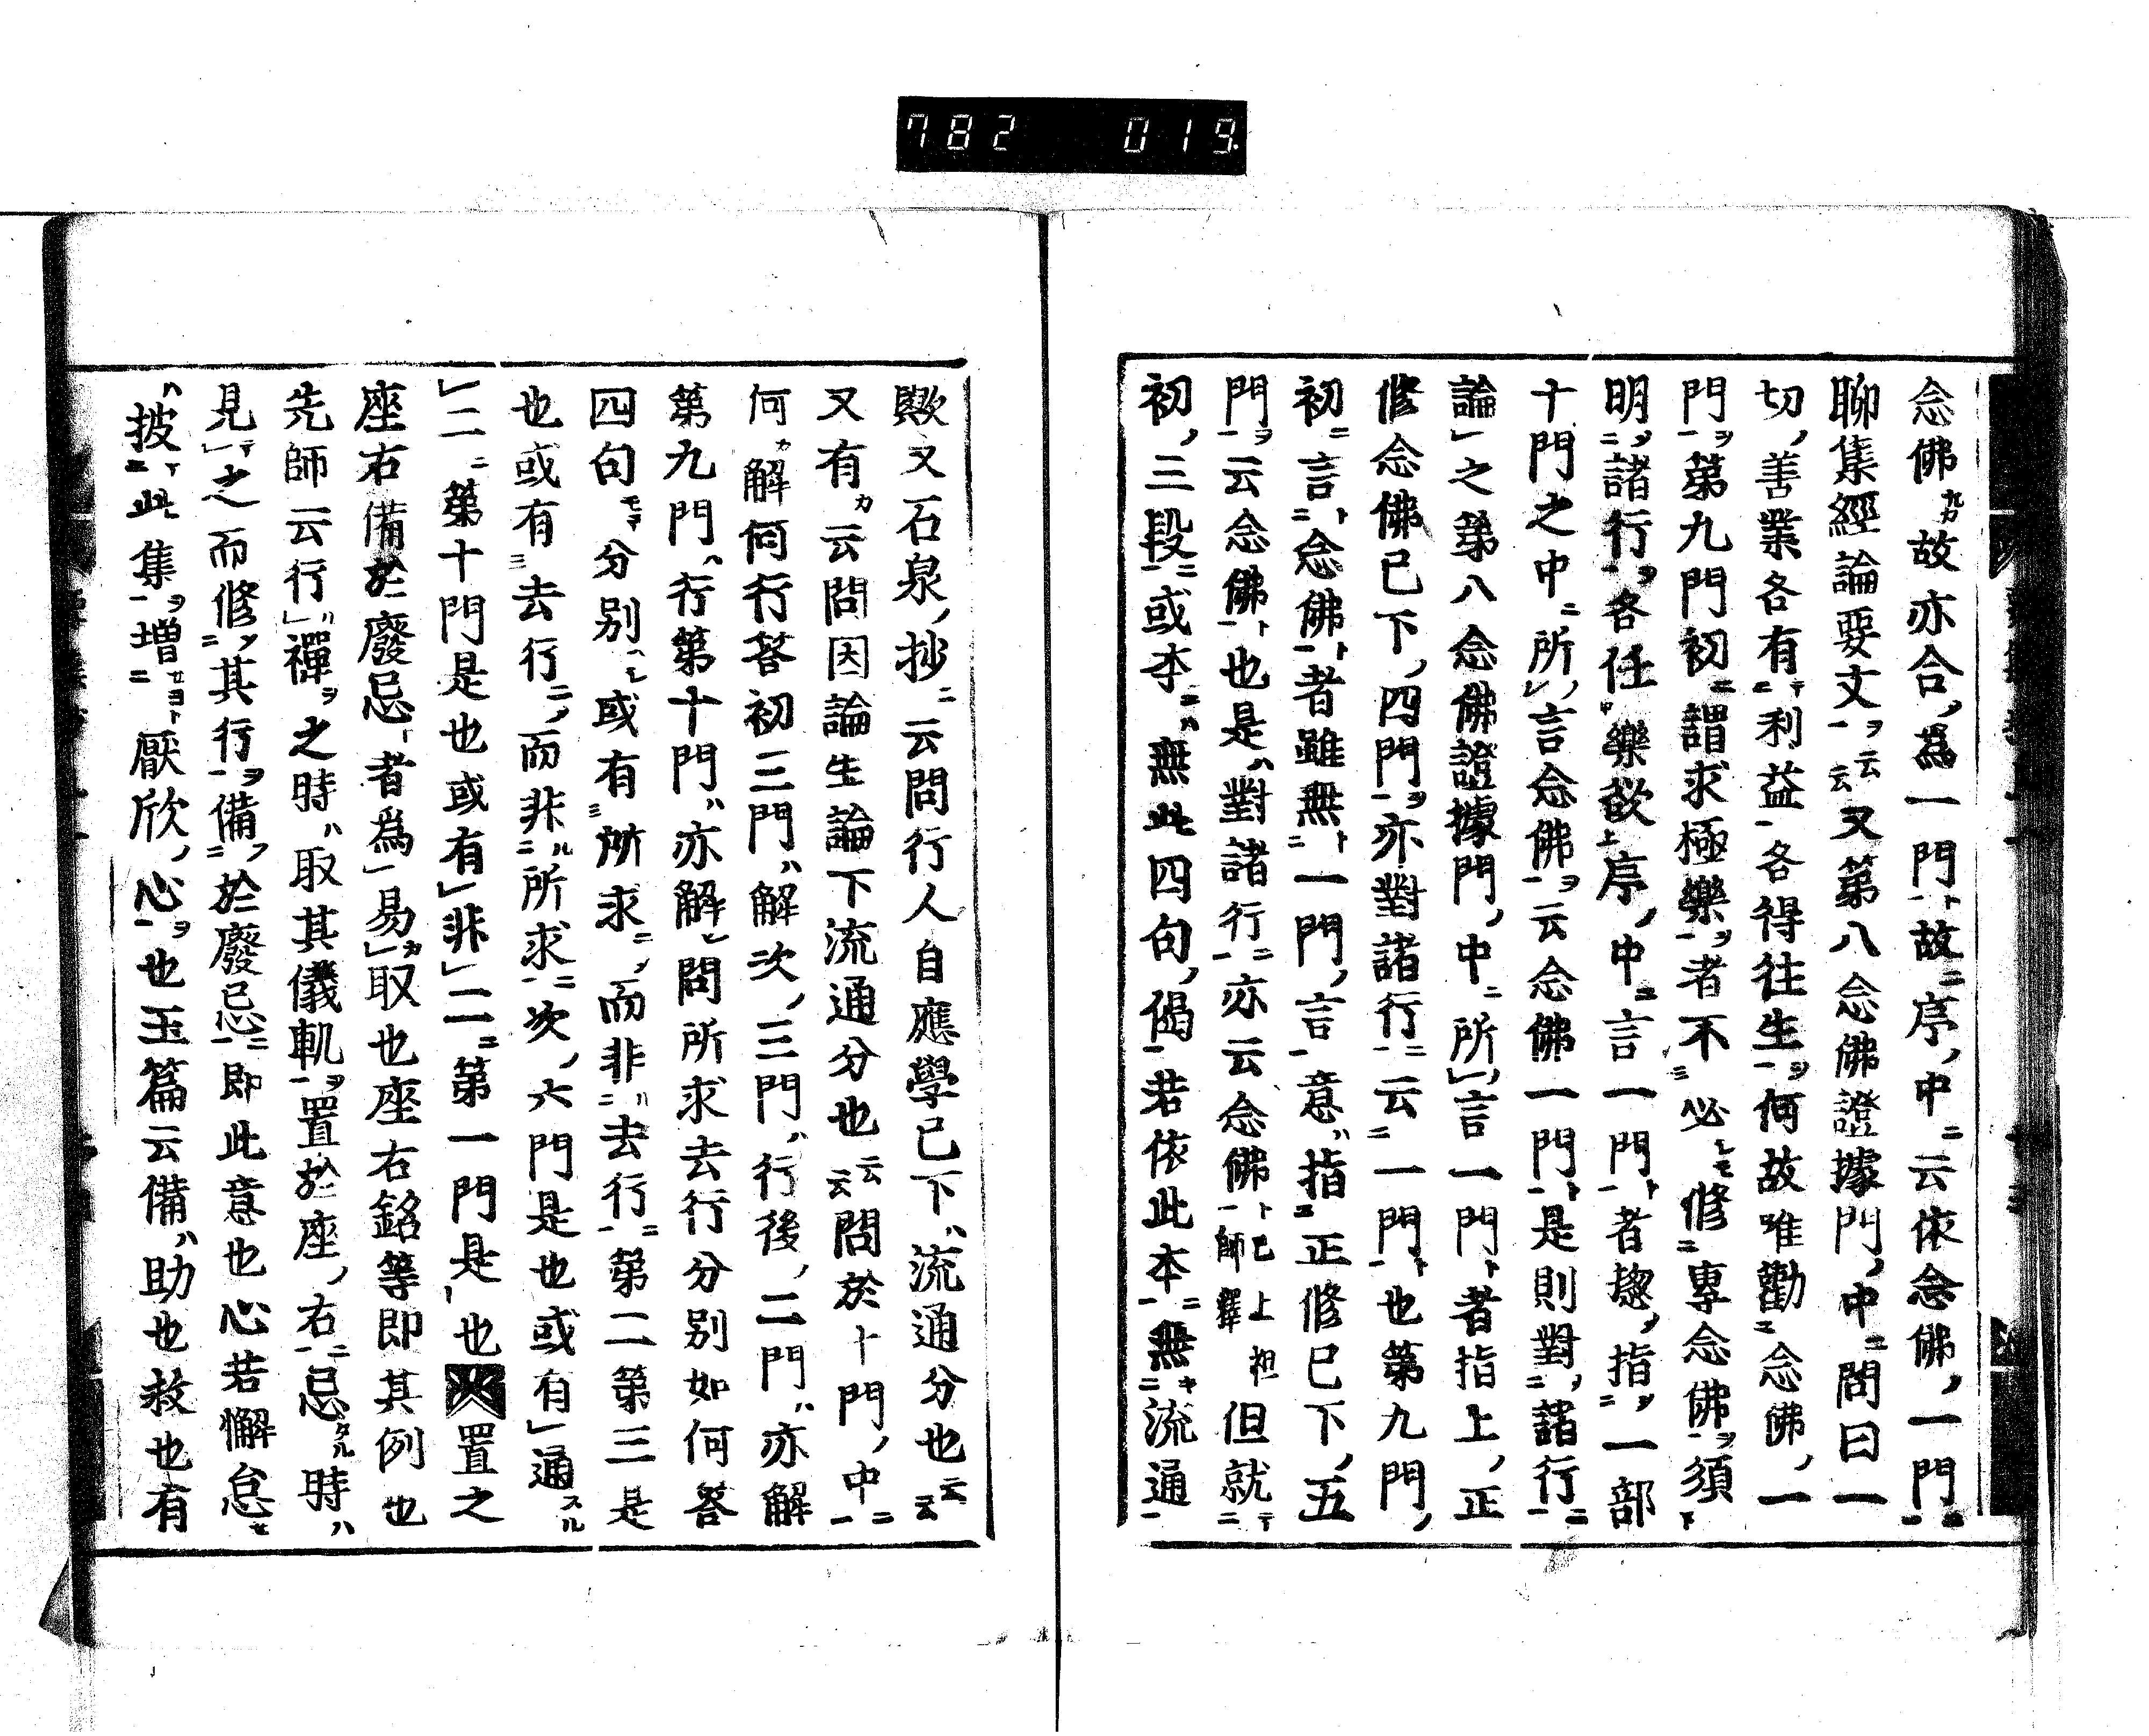 782 019
念佛故亦合爲一門故序中云依念佛一門
聊集經論要文云云又第八念佛證據門中問曰一
切善業各有利益各得往生何故唯勸念佛一
門第九門初謂求極樂者不必修專念佛須
明諸行各任樂欲序中言一門者揔指一部
十門之中所言念佛云念佛一門是則對諸行
論之第八念佛證據門中所言一門者指上正
修念佛已下四門亦對諸行云一門也第九門
初言念佛者雖無一門言意指正修已下五
門云念佛也是對諸行亦云念佛已上祖師釋但就
初三段或本無此四句偈若依此本無流通
歟又石泉抄云問行人自應學已下流通分也云云
又有云問因論生論下流通分也云云問於十門中
何解何行答初三門解次三門行後二門亦解
第九門行第十門亦解問所求去行分別如何答
四句分別或有所求而非去行第二第三是
也或有去行而非所求次六門是也或有通
二第十門是也或有非二第一門是也置之
座右備於廢忘者爲易取也座右銘等即其例也
先師云行禪之時取其儀軌置於座右忘時
見之而修其行備於廢忘即此意也心若懈怠
披此集增厭欣心也玉篇云備助也救也有